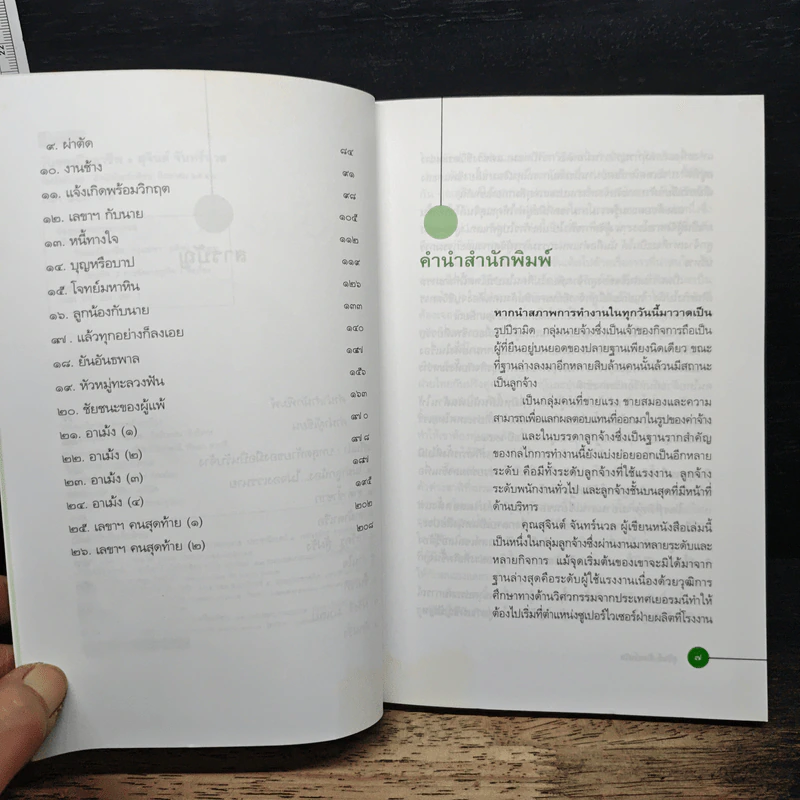 ๙. ผ่าตัด ๘๔
๑๐. งานช้าง ๙๑
๑๑. แจ้งเกิดพร้อมวิกฤต ๙๘
๑๒. เลขาฯ กับนาย ๑๐๕
๑๓. หนี้ทางใจ ๑๑๒
๑๔. บุญหรือบาป ๑๑๙
๑๕. โจทย์มหาหิน ๑๒๖
๑๖. ลูกน้องกับนาย ๑๓๓
๑๗. แล้วทุกอย่างก็ลงเอย ๑๔๐
๑๘. ยันอันธพาล ๑๔๗
๑๙. หัวหมู่ทะลวงฟัน ๑๕๖
๒๐. ชัยชนะของผู้แพ้ ๑๖๓
๒๑. อาเม้ง (๑) ๑๗๐
๒๒. อาเม้ง (๒) ๑๗๘
๒๓. อาเม้ง (๓) ๑๘๗
๒๔. อาเม้ง (๔) ๑๙๕
๒๕. เลขาฯ คนสุดท้าย (๑) ๒๐๒
๒๖. เลขาฯ คนสุดท้าย (๒) ๒๐๘
คำนำสำนักพิมพ์
หากนำสภาพการทำงานในทุกวันนี้มาวาดเป็น
รูปปิรามิด กลุ่มนายจ้างซึ่งเป็นเจ้าของกิจการถือเป็น
ผู้ที่ยืนอยู่บนยอดของปลายฐานเพียงนิดเดียว ขณะ
ที่ฐานล่างลงมาอีกหลายสิบล้านคนนั้นล้วนมีสถานะ
เป็นลูกจ้าง
เป็นกลุ่มคนที่ขายแรง ขายสมองและความ
สามารถเพื่อแลกผลตอบแทนที่ออกมาในรูปของค่าจ้าง
และในบรรดาลูกจ้างซึ่งเป็นฐานรากสำคัญ
ของกลไกการทำงานนี้ยังแบ่งย่อยออกเป็นอีกหลาย
ระดับ คือมีทั้งระดับลูกจ้างที่ใช้แรงงาน ลูกจ้าง
ระดับพนักงานทั่วไป และลูกจ้างชั้นบนสุดที่มีหน้าที่
ด้านบริหาร
คุณสุจินต์ จันทร์นวล ผู้เขียนหนังสือเล่มนี้
เป็นหนึ่งในกลุ่มลูกจ้างซึ่งผ่านงานมาหลายระดับและ
หลายกิจการ แม้จุดเริ่มต้นของเขาจะมิได้มาจาก
ฐานล่างสุดคือระดับผู้ใช้แรงงานเนื่องด้วยวุฒิการ
ศึกษาทางด้านวิศวกรรมจากประเทศเยอรมนีทำให้
ต้องไปเริ่มที่ตำแหน่งซูเปอร์ไวเซอร์ฝ่ายผลิตที่โรงงาน
๗